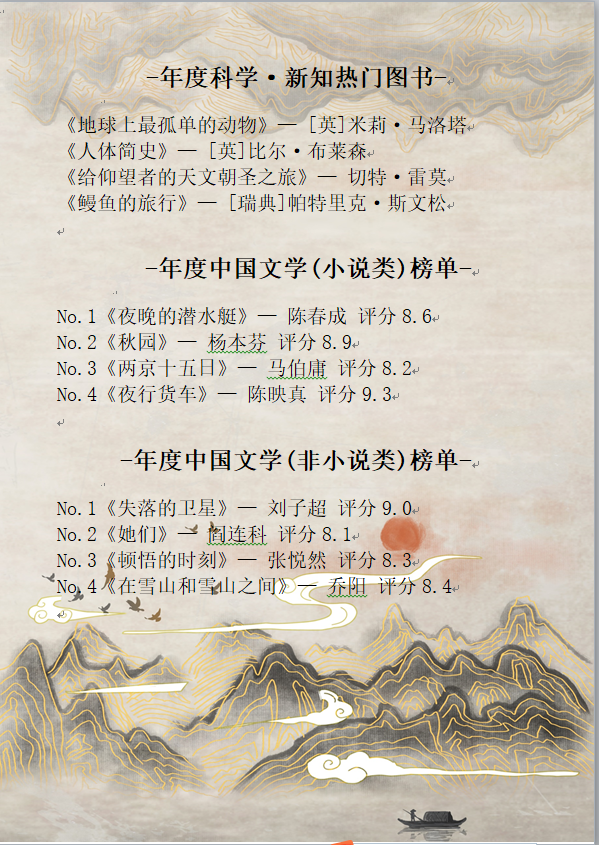 —年度科学·新知热门图书—
《地球上最孤单的动物》— [英]米莉·马洛塔
《人体简史》— [英]比尔·布莱森
《给仰望者的天文朝圣之旅》— 切特·雷莫
《鳗鱼的旅行》— [瑞典]帕特里克·斯文松
—年度中国文学(小说类)榜单—
No.1《夜晚的潜水艇》— 陈春成 评分8.6
No.2《秋园》— 杨本芬 评分8.9
No.3《两京十五日》— 马伯庸 评分8.2
No.4《夜行货车》— 陈映真 评分9.3
—年度中国文学(非小说类)榜单—
No.1《失落的卫星》— 刘子超 评分9.0
No.2《她们》— 阎连科 评分8.1
No.3《顿悟的时刻》— 张悦然 评分8.3
No.4《在雪山和雪山之间》— 乔阳 评分8.4